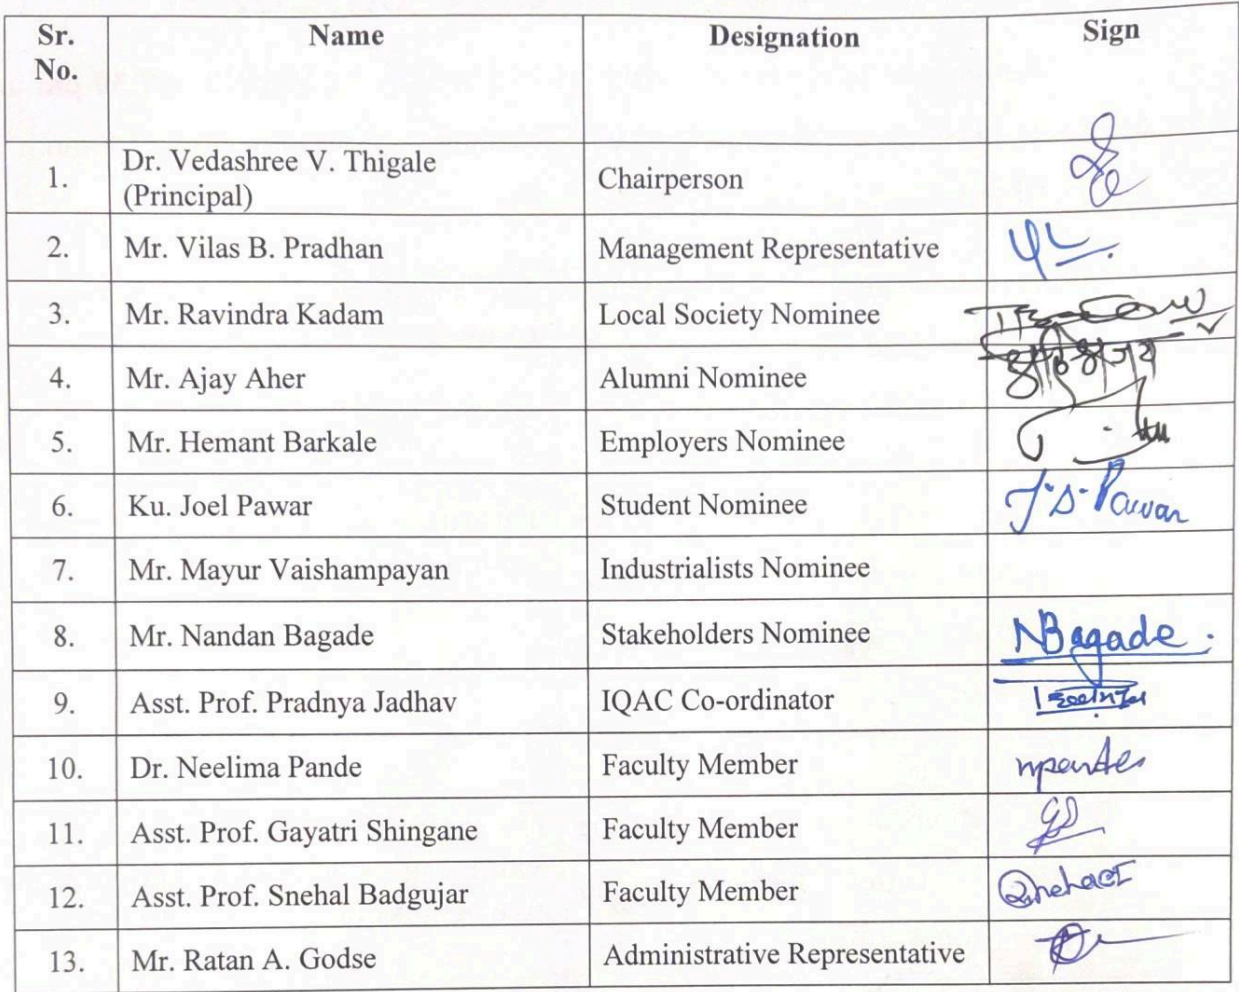 Sr. No. Name Designation Sign
1. Dr. Vedashree V. Thigale (Principal) Chairperson
2. Mr. Vilas B. Pradhan Management Representative
3. Mr. Ravindra Kadam Local Society Nominee
4. Mr. Ajay Aher Alumni Nominee
5. Mr. Hemant Barkale Employers Nominee
6. Ku. Joel Pawar Student Nominee J.S. Pawar
7. Mr. Mayur Vaishampayan Industrialists Nominee
8. Mr. Nandan Bagade Stakeholders Nominee NBagade.
9. Asst. Prof. Pradnya Jadhav IQAC Co-ordinator
10. Dr. Neelima Pande Faculty Member npande
11. Asst. Prof. Gayatri Shingane Faculty Member
12. Asst. Prof. Snehal Badgujar Faculty Member
13. Mr. Ratan A. Godse Administrative Representative